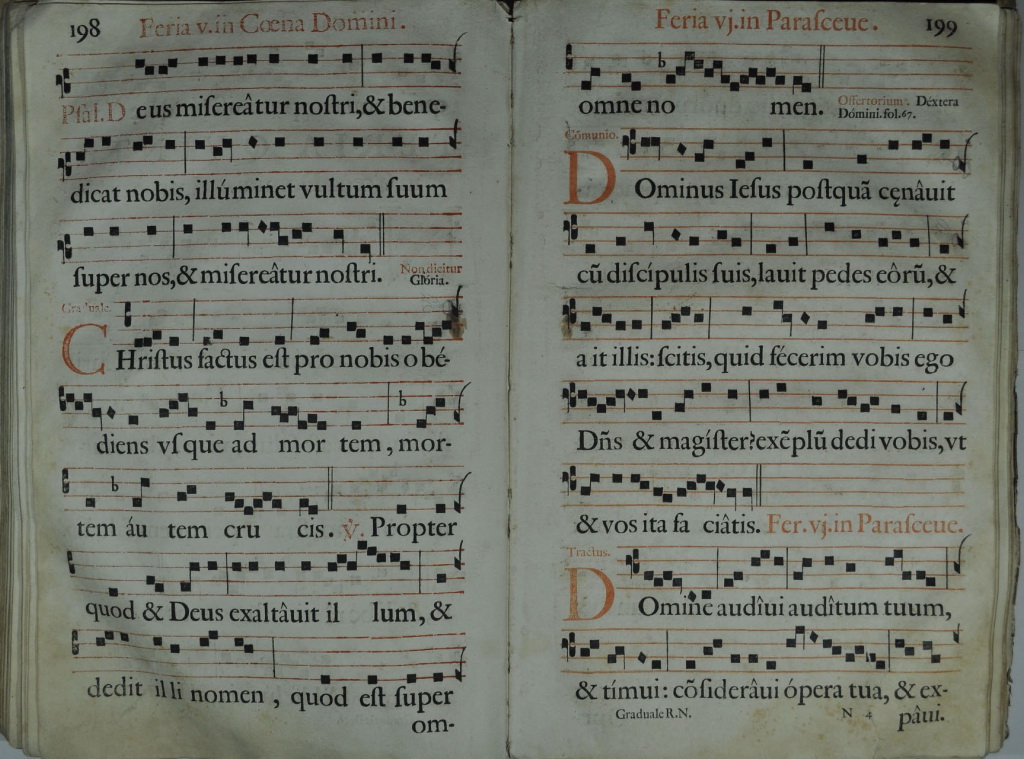 198 Feria v. in Cœna Domini.
Psal. D eus misereâtur nostri, & bene-
dicat nobis, illúminet vultum suum
super nos, & misereâtur nostri. Non dicitur
Glória.
Graduale.
CHristus factus est pro nobis o bé-
diens vsque ad mor tem, mor-
b b
tem áu tem cru cis. ℣. Propter
b
quod & Deus exaltâuit il lum, &
dedit il li nomen, quod est super
om-
Feria vj. in Parasceue. 199
b
omne no men. Offertorium. Déxtera
Dómini. fol. 67.
Cômunio.
DOminus Iesus postquã cęnâuit
cũ discípulis suis, lauit pedes eôrũ, &
a it illis: scitis, quid fécerim vobis ego
Dñs & magíster? exẽplũ dedi vobis, vt
& vos ita fa ciâtis. Fer. vj. in Parasceue.
Tractus.
DOmine audîui audîtum tuum,
& tímui: cõsiderâui ópera tua, & ex-
Graduale R. N. N 4 pâui.